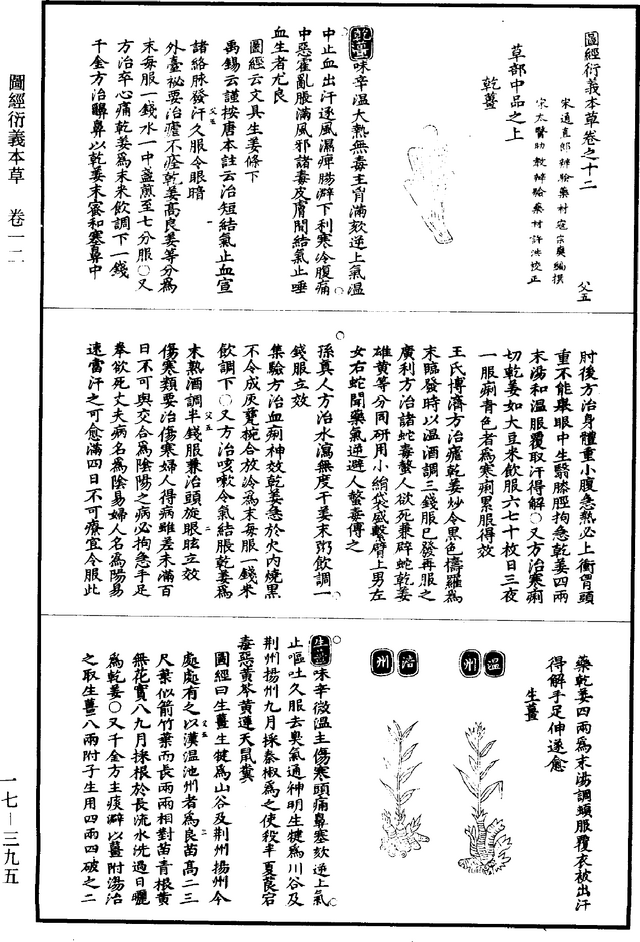 圖經衍義本草卷之十二
父五
宋通直郎辨驗藥材寇宗奭編撰
宋太醫助教辨驗藥材許洪校正
草部中品之上
乾薑
乾薑味辛溫大熱無毒主胷滿欬逆上氣溫
中止血出汗逐風濕痺腸澼下利寒冷腹痛
中惡霍亂脹滿風邪諸毒皮膚間結氣止唾
血生者尤良
圖經云文具生姜條下
禹錫云謹按唐本註云治短結氣止血宣
諸絡脉發汗久服令眼暗
外臺祕要治瘧不痊乾姜高良姜等分爲
末每服一錢水一中盞煎至七分服○又
方治卒心痛乾姜爲末米飲調下一錢
千金方治齆鼻以乾姜末蜜和塞鼻中
肘後方治身體重小腹急熱必上衝胷頭
重不能舉眼中生瞖膝脛拘急乾姜四兩
末湯和溫服覆取汗得解○又方治寒痢
切乾姜如大豆米飲服六七十枚日三夜
一服痢青色者爲寒痢累服得效
王氏博濟方治瘧乾姜炒令黑色擣羅爲
末臨發時以溫酒調三錢服已發再服之
廣利方治諸蛇毒螫人欲死兼辟蛇乾姜
雄黃等分同研用小絹袋盛繫臂上男左
女右蛇聞藥氣逆避人螫毒傅之
孫真人方治水瀉無度干姜末粥飲調一
錢服立效
集驗方治血痢神效乾姜急於火內燒黑
不令成灰甆椀合放冷爲末每服一錢米
飲調下○又方治咳嗽冷氣結脹乾姜爲
末熟酒調半錢服兼治頭旋眼眩立效
傷寒類要治傷寒婦人得病雖差未滿百
日不可與交合爲陰陽之病必拘急手足
拳欲死丈夫病名爲陰易婦人名爲陽易
速當汗之可愈滿四日不可療宜令服此
藥乾姜四兩爲末湯調頻服覆衣被出汗
得解手足伸遂愈
生薑
溫州
涪州
生薑味辛微溫主傷寒頭痛鼻塞欬逆上氣
止嘔吐久服去臭氣通神明生犍爲川谷及
荆州揚州九月採秦椒爲之使殺半夏莨菪
毒惡黃芩黃連天鼠糞
圖經曰生薑生犍爲山谷及荆州揚州今
處處有之以漢溫池州者爲良苗高二三
尺葉似箭竹葉而長兩兩相對苗青根黃
無花實八九月採根於長流水洗過日曬
爲乾姜○又千金方主痰澼以薑附湯治
之取生薑八兩附子生用四兩四破之二
圖經衍義本草 卷一二
一七—三九五